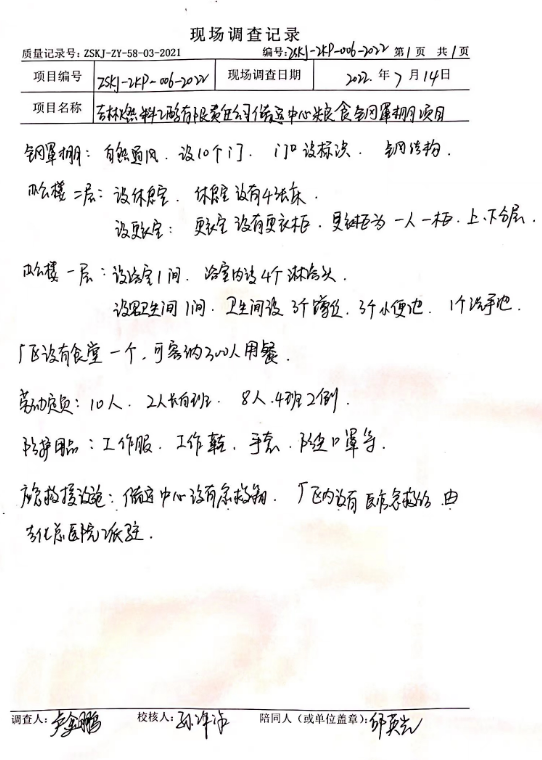 现场调查记录
质量记录号：ZSKJ-ZY-58-03-2021 编号：ZSKJ-ZKP-006-2022 第1页 共1页
项目编号 ZSKJ-ZKP-006-2022 现场调查日期 2022. 年 7 月 14日
项目名称 吉林燃料乙醇有限责任公司储运中心粮食钢罩棚项目
钢罩棚：自然通风．设10个门． 门口设标识． 钢结构．
办公楼二层：设休息室． 休息室设有4张床．
设更衣室： 更衣室设有更衣柜．更衣柜为一人一柜．上、下分层．
办公楼一层：设浴室1间． 浴室内设4个淋浴头．
设卫生间1间．卫生间设3个蹲位．3个小便池． 1个洗手池．
厂区设有食堂一个．可容纳300人用餐．
劳动定员：10人． 2人长白班． 8人．4班2倒．
防护用品：工作服．工作鞋．手套．防尘口罩等．
应急救援设施：储运中心设有急救箱． 厂区内设有 急救站 由
吉化总医院派驻．
调查人： 校核人： 陪同人（或单位盖章）：